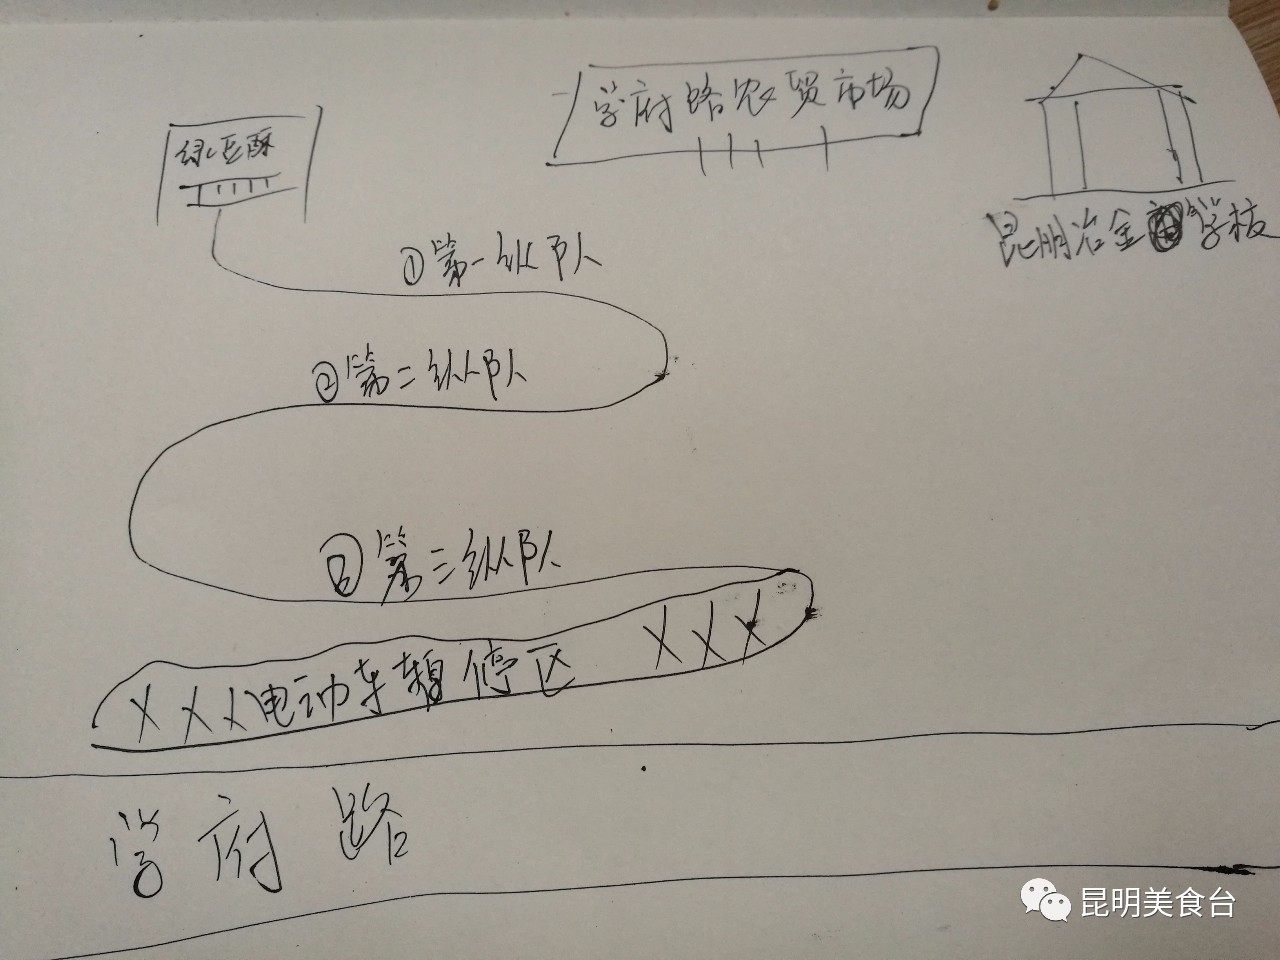 学府路农贸市场
绿豆酥
昆明冶金学校
①第一纵队
②第二纵队
③第三纵队
XXX电动车暂停区 XXX
学府路
昆明美食台